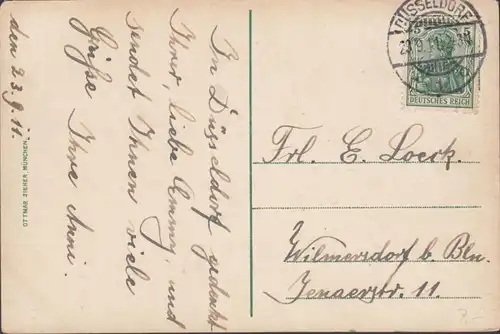 den 23.9.11.
In Düsseldorf gedenkt
Ihrer, liebe Emmy, und
sendet Ihnen viele
Grüße Ihre Anni.
OTTMAR ZIEHER MÜNCHEN.
DÜSSELDORF
23.9.11.
DEUTSCHES REICH
Frl. E. Loeck.
Wilmersdorf b. Bln.
Jenaerstr. 11.